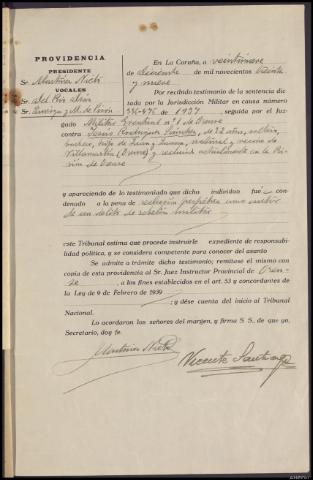 PROVIDENCIA
PRESIDENTE
Sr. Martínez Nieto
VOCALES
Sr. del Río
Sr.
En La Coruña, a veintinueve
de Diciembre de mil novecientos treinta
y nueve
Por recibido testimonio de la sentencia dic
tada por la Jurisdicción Militar en causa número
de 1937 seguida por el Juz-
gado Militar Eventual nº 1 de Orense
contra Jesús Rodríguez Sánchez, de 22 años, soltero,
hijo de Juan y natural y vecino de
Villamartín (Orense) y recluido actualmente en la Pri-
sión de Orense
y apareciendo de lo testimoniado que dicho individuo fué con-
denado a la pena de reclusión perpetua como autor
de un delito de rebelión militar
este Tribunal estima que procede instruirle expediente de responsabi-
lidad política, y se considera competente para conocer del asunto
Se admite a trámite dicho testimonio; remítase el mismo con
copia de esta providencia al Sr. Juez Instructor Provincial de Oren-
se, a los fines establecidos en el art. 53 y concordantes de
la Ley de 9 de Febrero de 1939
; y dése cuenta del inicio al Tribunal
Nacional.
Lo acordaron los señores del margen, y firma S. S. de que yo,
Secretario, doy fe.
Martínez Nieto
Vicente Santiago